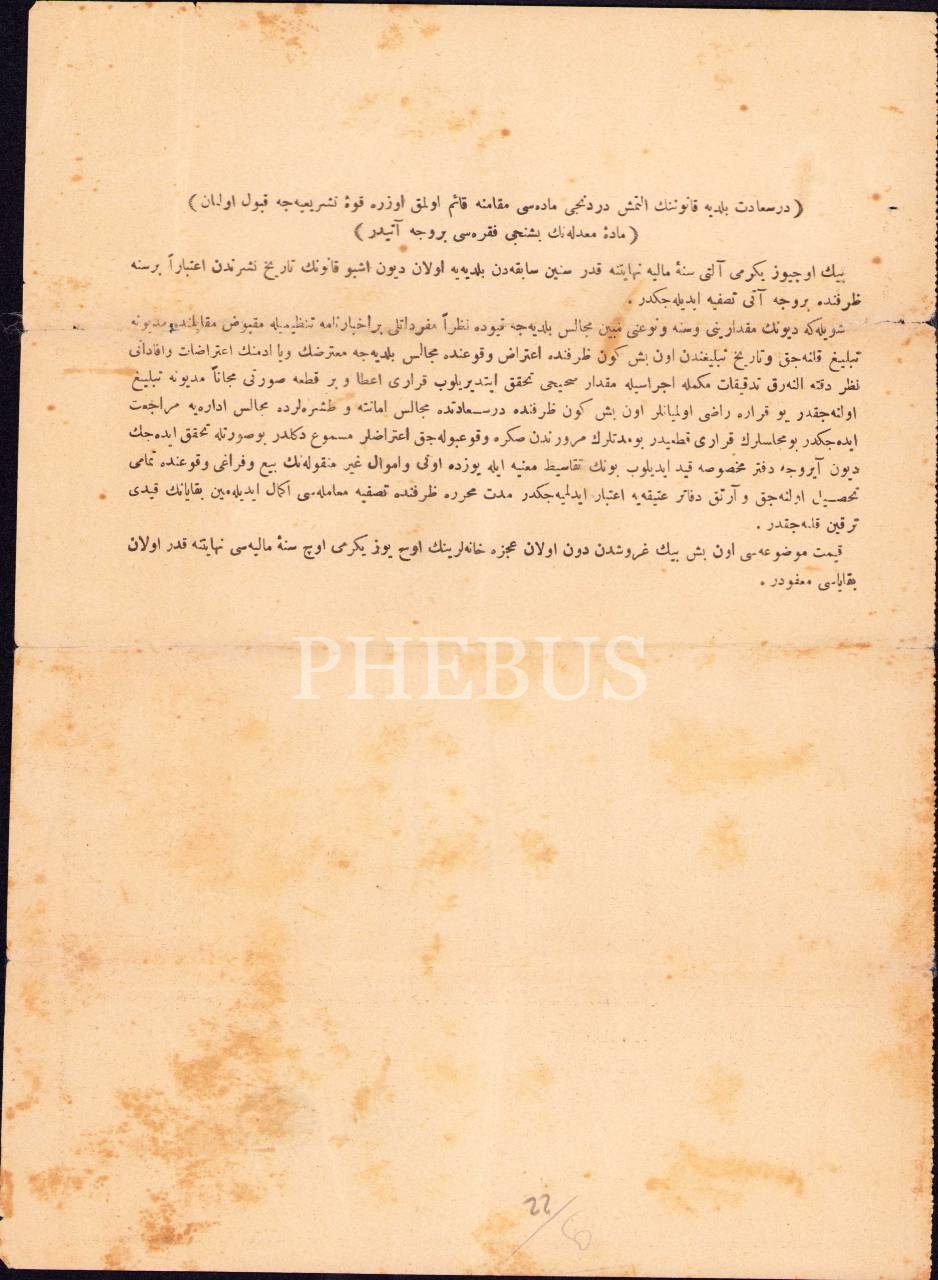 ( درسعادت بلدیه قانوننك التمش دردنجی ماده‌سی مقامنه قائم اولمق اوزره قوهٔ تشریعیه‌جه قبول اولنان )
( مادهٔ معدله‌نك بشنجی فقره‌سی بروجه آتیدر )
بیك اوچیوز یكرمی آلتی سنهٔ مالیه نهایتنه قدر سنین سابقه‌دن بلدیه‌یه اولان دیون اشبو قانونك تاریخ نشرندن اعتباراً برسنه
ظرفنده بروجه آتی تصفیه ایدیله‌جكدر .
شویله‌كه دیونك مقدارینی وسنه ونوعنی مبین مجالس بلدیه‌جه قیوده نظراً مفرداتلی براخبارنامه تنظیمیله مقبوض مقابلنده مدیونه
تبلیغ قلنه‌جق وتاریخ تبلیغندن اون بش كون ظرفنده اعتراض وقوعنده مجالس بلدیه‌جه معترضك ویا ادمنك اعتراضات وافاداتی
نظر دقته النه‌رق تدقیقات مكمله اجراسیله مقدار صحیحی تحقق ایتدیریلوب قراری اعطا و بر قطعه صورتی مجاناً مدیونه تبلیغ
اولنه‌جقدر بو قراره راضی اولمیانلر اون بش كون ظرفنده درسعادتده مجالس امانته و طشره‌لرده مجالس اداره‌یه مراجعت
ایده‌جكدر بومجلسلرك قراری قطعیدر بومدتلرك مرورندن صكره وقوعبوله‌جق اعتراضلر مسموع دكلدر بوصورتله تحقق ایده‌جك
دیون آیروجه دفتر مخصوصه قید ایدیلوب بونك تقاسیط معنیه ایله یوزده اونی واموال غیر منقوله‌نك بیع وفراغی وقوعنده تمامی
تحصیل اولنه‌جق و آرتق دفاتر عتیقه‌یه اعتبار ایدلمیه‌جكدر مدت محرره ظرفنده تصفیه معامله‌سی اكمال ایدیله‌مین بقایانك قیدی
ترقین قلنه‌جقدر .
قیمت موضوعه‌سی اون بش بیك غروشدن دون اولان عجزه خانه‌لرینك اوچ یوز یكرمی اوچ سنهٔ مالیه‌سی نهایتنه قدر اولان
بقایاسی معفودر .
PHEBUS
22/